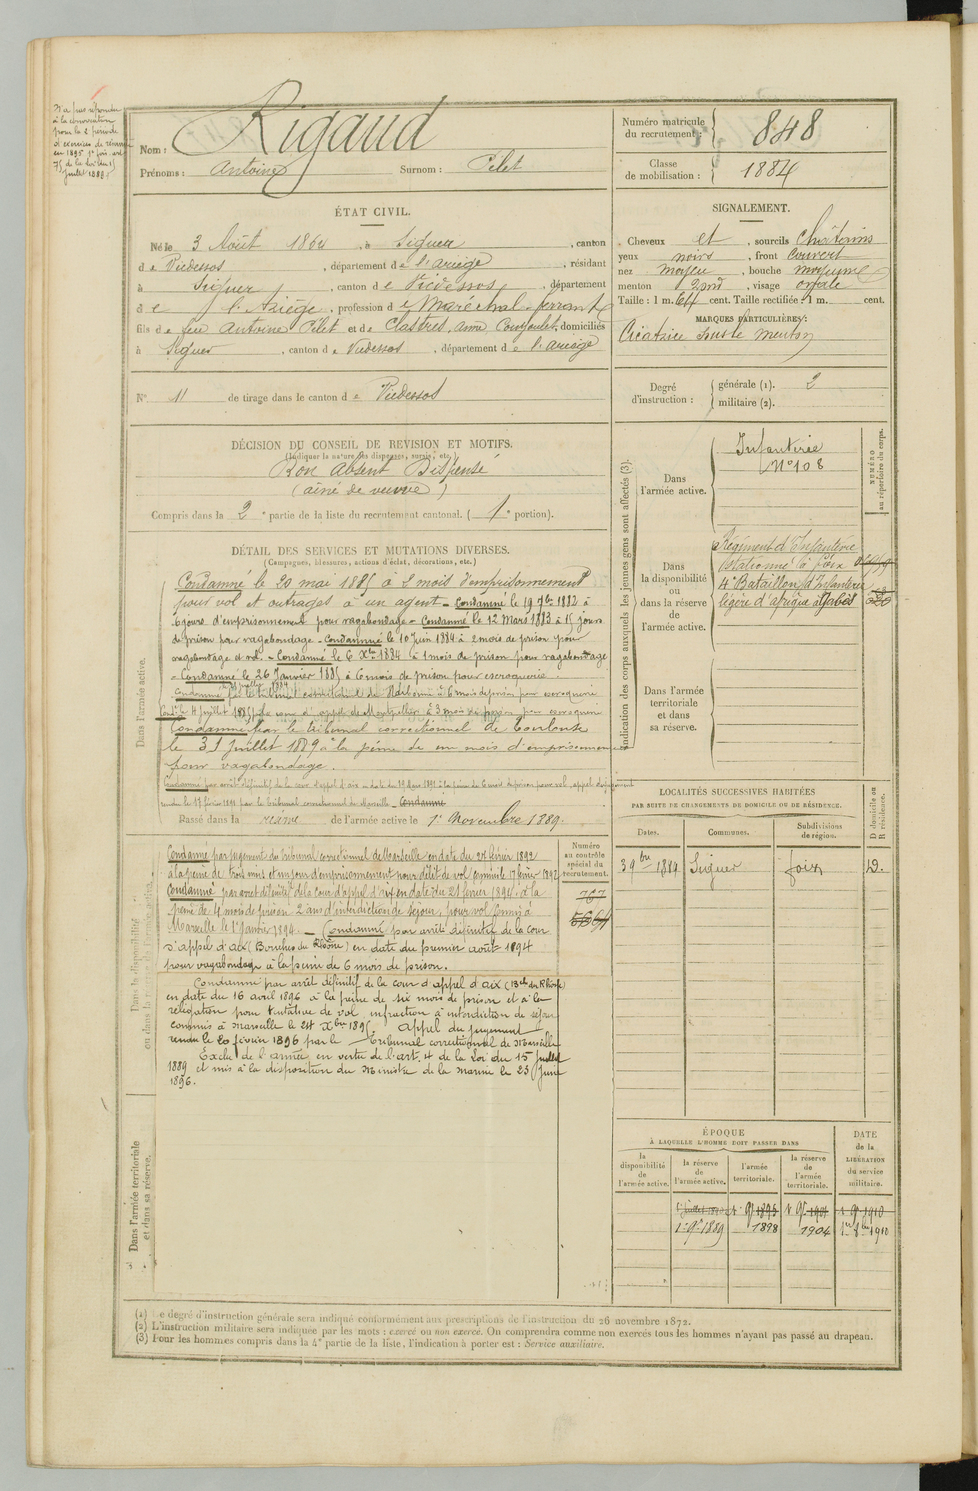 N'a pas répondu
à la convocation
pour la 2e période
d'exercices de réserve
en 1895 1e fois art.
75 de la loi du 15
juillet 1889
Nom : Rigaud
Prénoms : Antoine Surnom : Pelet
Numéro matricule
du recrutement : 848
Classe
de mobilisation : 1884
ÉTAT CIVIL.
Né le 3 Août 1864, à Siguer, canton
de Vicdessos, département de l'ariège, résidant
à Siguer, canton de Vicdessos, département
de l'Ariège, profession de Maréchal-ferrant
fils de feu Antoine Pelet et de Clastres, anne, domiciliés
à Siguer, canton de Vicdessos, département de l'ariège
N° 11 de tirage dans le canton de Vicdessos
SIGNALEMENT.
Cheveux et, sourcils Châtains
yeux noirs, front couvert
nez moyen, bouche moyenne
menton rond, visage ovale
Taille : 1 m. 64 cent. Taille rectifiée : 1 m. cent.
MARQUES PARTICULIÈRES :
Cicatrice sous le menton
Degré
d'instruction : générale (1). 2
militaire (2).
DÉCISION DU CONSEIL DE REVISION ET MOTIFS.
(Indiquer la nature des dispenses, sursis, etc.)
Bon absent Dispensé
(aîné de veuve)
Compris dans la 2e partie de la liste du recrutement cantonal. (1e portion).
DÉTAIL DES SERVICES ET MUTATIONS DIVERSES.
(Campagnes, blessures, actions d'éclat, décorations, etc.)
Dans l'armée active.
Condamné le 20 mai 1885 à 2 mois d'emprisonnement
pour vol et outrages à un agent - Condamné le 19 7bre 1882 à
6 jours d'emprisonnement pour vagabondage - Condamné le 12 Mars 1883 à 15 jours
de prison pour vagabondage - Condamné le 10 Juin 1884 à 2 mois de prison pour
vagabondage et vol. - Condamné le 6 Xbre 1884 à 1 mois de prison pour vagabondage
- Condamné le 26 Janvier 1885 à 6 mois de prison pour escroquerie.
Condamné par le tribunal correctionnel de Narbonne à 6 mois de prison pour escroquerie
Cond. le 4 Juillet 1885 par la cour d'appel de Montpellier à 3 mois de prison pour escroquerie
Condamné par le tribunal correctionnel de Toulouse
le 31 Juillet 1889 à la peine de un mois d'emprisonnement
pour vagabondage.
Condamné par arrêt définitif de la cour d'appel d'aix en date du 19 Mars 1891 à la peine de 6 mois de prison pour vol, appel du jugement
rendu le 17 février 1891 par le tribunal correctionnel de Marseille - Condamné
Passé dans la réserve de l'armée active le 1er Novembre 1889.
Dans la disponibilité
ou dans la réserve de l'armée active.
Condamné par jugement du tribunal correctionnel de Marseille en date du 24 février 1892
à la peine de trois mois et un jour d'emprisonnement pour délit de vol commis le 17 février 1892
Condamné par arrêt définitif de la cour d'appel d'aix en date du 21 février 1894 à la
peine de 4 mois de prison 2 ans d'interdiction de séjour, pour vol commis à
Marseille le 1er Janvier 1894. - Condamné par arrêt définitif de la cour
d'appel d'aix (Bouches du Rhône) en date du premier août 1894
pour vagabondage à la peine de 6 mois de prison.
Condamné par arrêt définitif de la cour d'appel d'aix (Bch. du Rhône)
en date du 16 avril 1896 à la peine de six mois de prison et à la
relégation pour tentative de vol, infraction à interdiction de séjour
commis à Marseille le 28 Xbre 1895, appel du jugement
rendu le 20 février 1896 par le Tribunal correctionnel de Marseille
Exclu de l'armée en vertu de l'art. 4 de la Loi du 15 Juillet
1889 et mis à la disposition du Ministre de la marine le 23 Juin
1896.
Numéro
au contrôle
spécial du
recrutement.
767
Dans l'armée territoriale
et dans sa réserve.
Indication des corps auxquels les jeunes gens sont affectés (3).
NUMÉRO
au répertoire du corps.
Dans
l'armée active.
Infanterie
N° 108
Dans
la disponibilité
ou
dans la réserve
de
l'armée active.
Régiment d'Infanterie
stationné à foix
4e Bataillon d'Infanterie
légère d'afrique à Gabès
Dans l'armée
territoriale
et dans
sa réserve.
LOCALITÉS SUCCESSIVES HABITÉES
PAR SUITE DE CHANGEMENTS DE DOMICILE OU DE RÉSIDENCE.
Dates. Communes. Subdivisions
de région. D domicile ou
R résidence.
3 9bre 1889 Siguer foix D.
ÉPOQUE
À LAQUELLE L'HOMME DOIT PASSER DANS
DATE
de la
LIBÉRATION
du service
militaire.
la
disponibilité
de
l'armée active.
la réserve
de
l'armée active.
l'armée
territoriale.
la réserve
de
l'armée
territoriale.
1er juillet 1890 1er 9bre 1895 1er 9bre 1901 1er 9bre 1910
1er 9bre 1889 1898 1904 1er 8bre 1910
(1) Le degré d'instruction générale sera indiqué conformément aux prescriptions de l'instruction du 26 novembre 1872.
(2) L'instruction militaire sera indiquée par les mots : exercé ou non exercé. On comprendra comme non exercés tous les hommes n'ayant pas passé au drapeau.
(3) Pour les hommes compris dans la 4e partie de la liste, l'indication à porter est : Service auxiliaire.